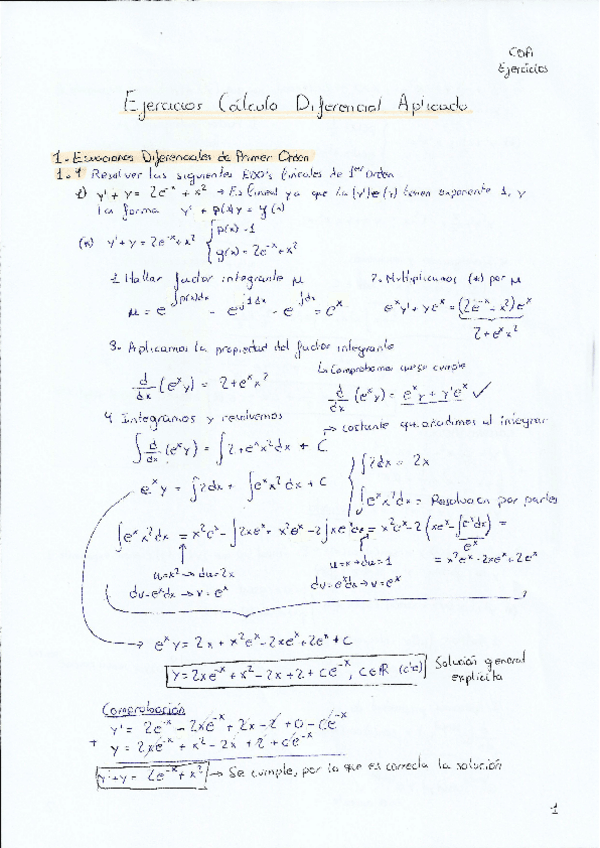 CDA
Ejercicios
Ejercicios Cálculo Diferencial Aplicado
1.- Ecuaciones Diferenciales de Primer Orden
1.1 Resolver las siguientes EDO's lineales de 1er Orden
1) y' + y = 2e^-x + x^2 → Es lineal ya que la (y') e (y) tienen exponente 1, y
la forma y' + p(x)y = g(x)
(*) y' + y = 2e^-x + x^2 { p(x) = 1
g(x) = 2e^-x + x^2
1. Hallar factor integrante μ
μ = e^∫p(x)dx = e^∫1dx = e^∫dx = e^x
2.- Multiplicamos (*) por μ
e^x y' + y e^x = (2e^-x + x^2)e^x
2 + e^x x^2
3.- Aplicamos la propiedad del factor integrante
d/dx (e^x y) = 2 + e^x x^2
↳ Comprobamos que se cumple
d/dx (e^x y) = e^x y + y' e^x ✓
4. Integramos y resolvemos
→ constante que añadimos al integrar
∫ d/dx (e^x y) = ∫ 2 + e^x x^2 dx + C
e^x y = ∫2dx + ∫e^x x^2 dx + C
∫2dx = 2x
∫e^x x^2 dx = Resolución por partes
∫e^x x^2 dx = x^2 e^x - ∫2xe^x = x^2 e^x - 2∫xe^x dx = x^2 e^x - 2(xe^x - ∫e^x dx) =
e^x
u = x^2 → du = 2x
dv = e^x dx → v = e^x
u = x → du = 1
dv = e^x dx → v = e^x
= x^2 e^x - 2xe^x + 2e^x
→ e^x y = 2x + x^2 e^x - 2xe^x + 2e^x + C
y = 2xe^-x + x^2 - 2x + 2 + Ce^-x, C∈ℝ (cte)
Solución general
explícita
Comprobación
y' = 2e^-x - 2xe^-x + 2x - 2 + 0 - Ce^-x
+ y = 2xe^-x + x^2 - 2x + 2 + Ce^-x
y' + y = 2e^-x + x^2 → Se cumple, por lo que es correcta la solución
1